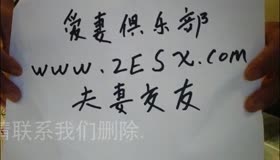 爱妻俱乐部
www.2ESX.com
夫妻交友
请联系我们删除.